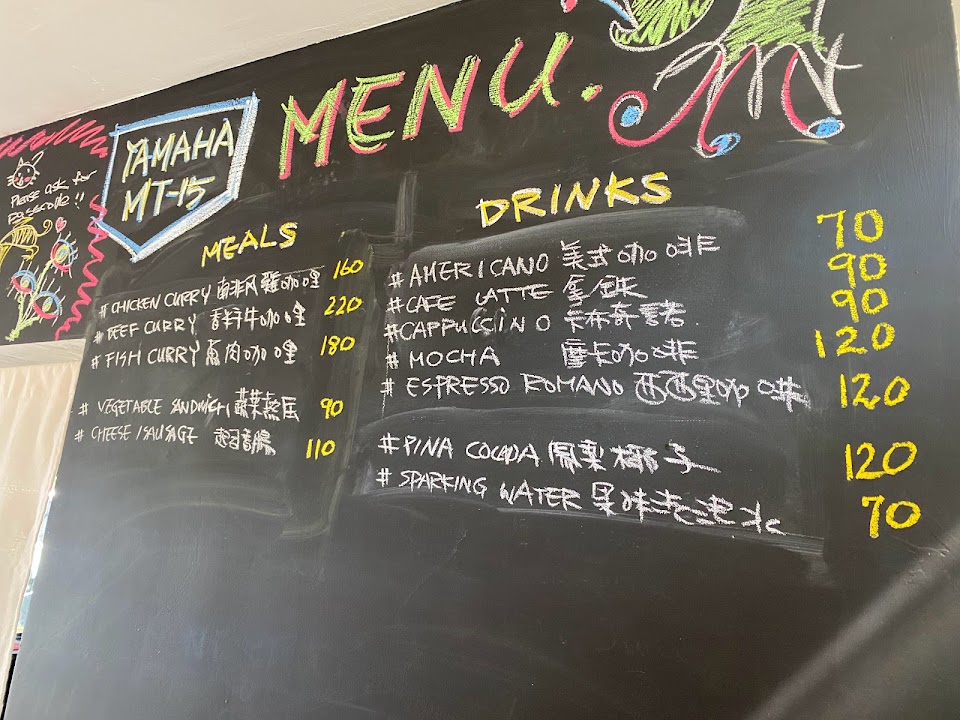 MENU.
YAMAHA
MT-15
Please ask for
passcode!!
MEALS
# CHICKEN CURRY 南非風雞咖哩 160
# BEEF CURRY 香料牛咖哩 220
# FISH CURRY 魚肉咖哩 180
# VEGETABLE SANDWICH 蔬菜 90
# CHEESE / SAUSAGE 起司香腸 110
DRINKS
# AMERICANO 美式咖啡 70
# CAFE LATTE 拿鐵 90
# CAPPUCCINO 卡布奇諾 90
# MOCHA 摩卡咖啡 120
# ESPRESSO ROMANO 西西里咖啡 120
# PINA COLADA 鳳梨椰子 120
# SPARKING WATER 果味氣泡水 70